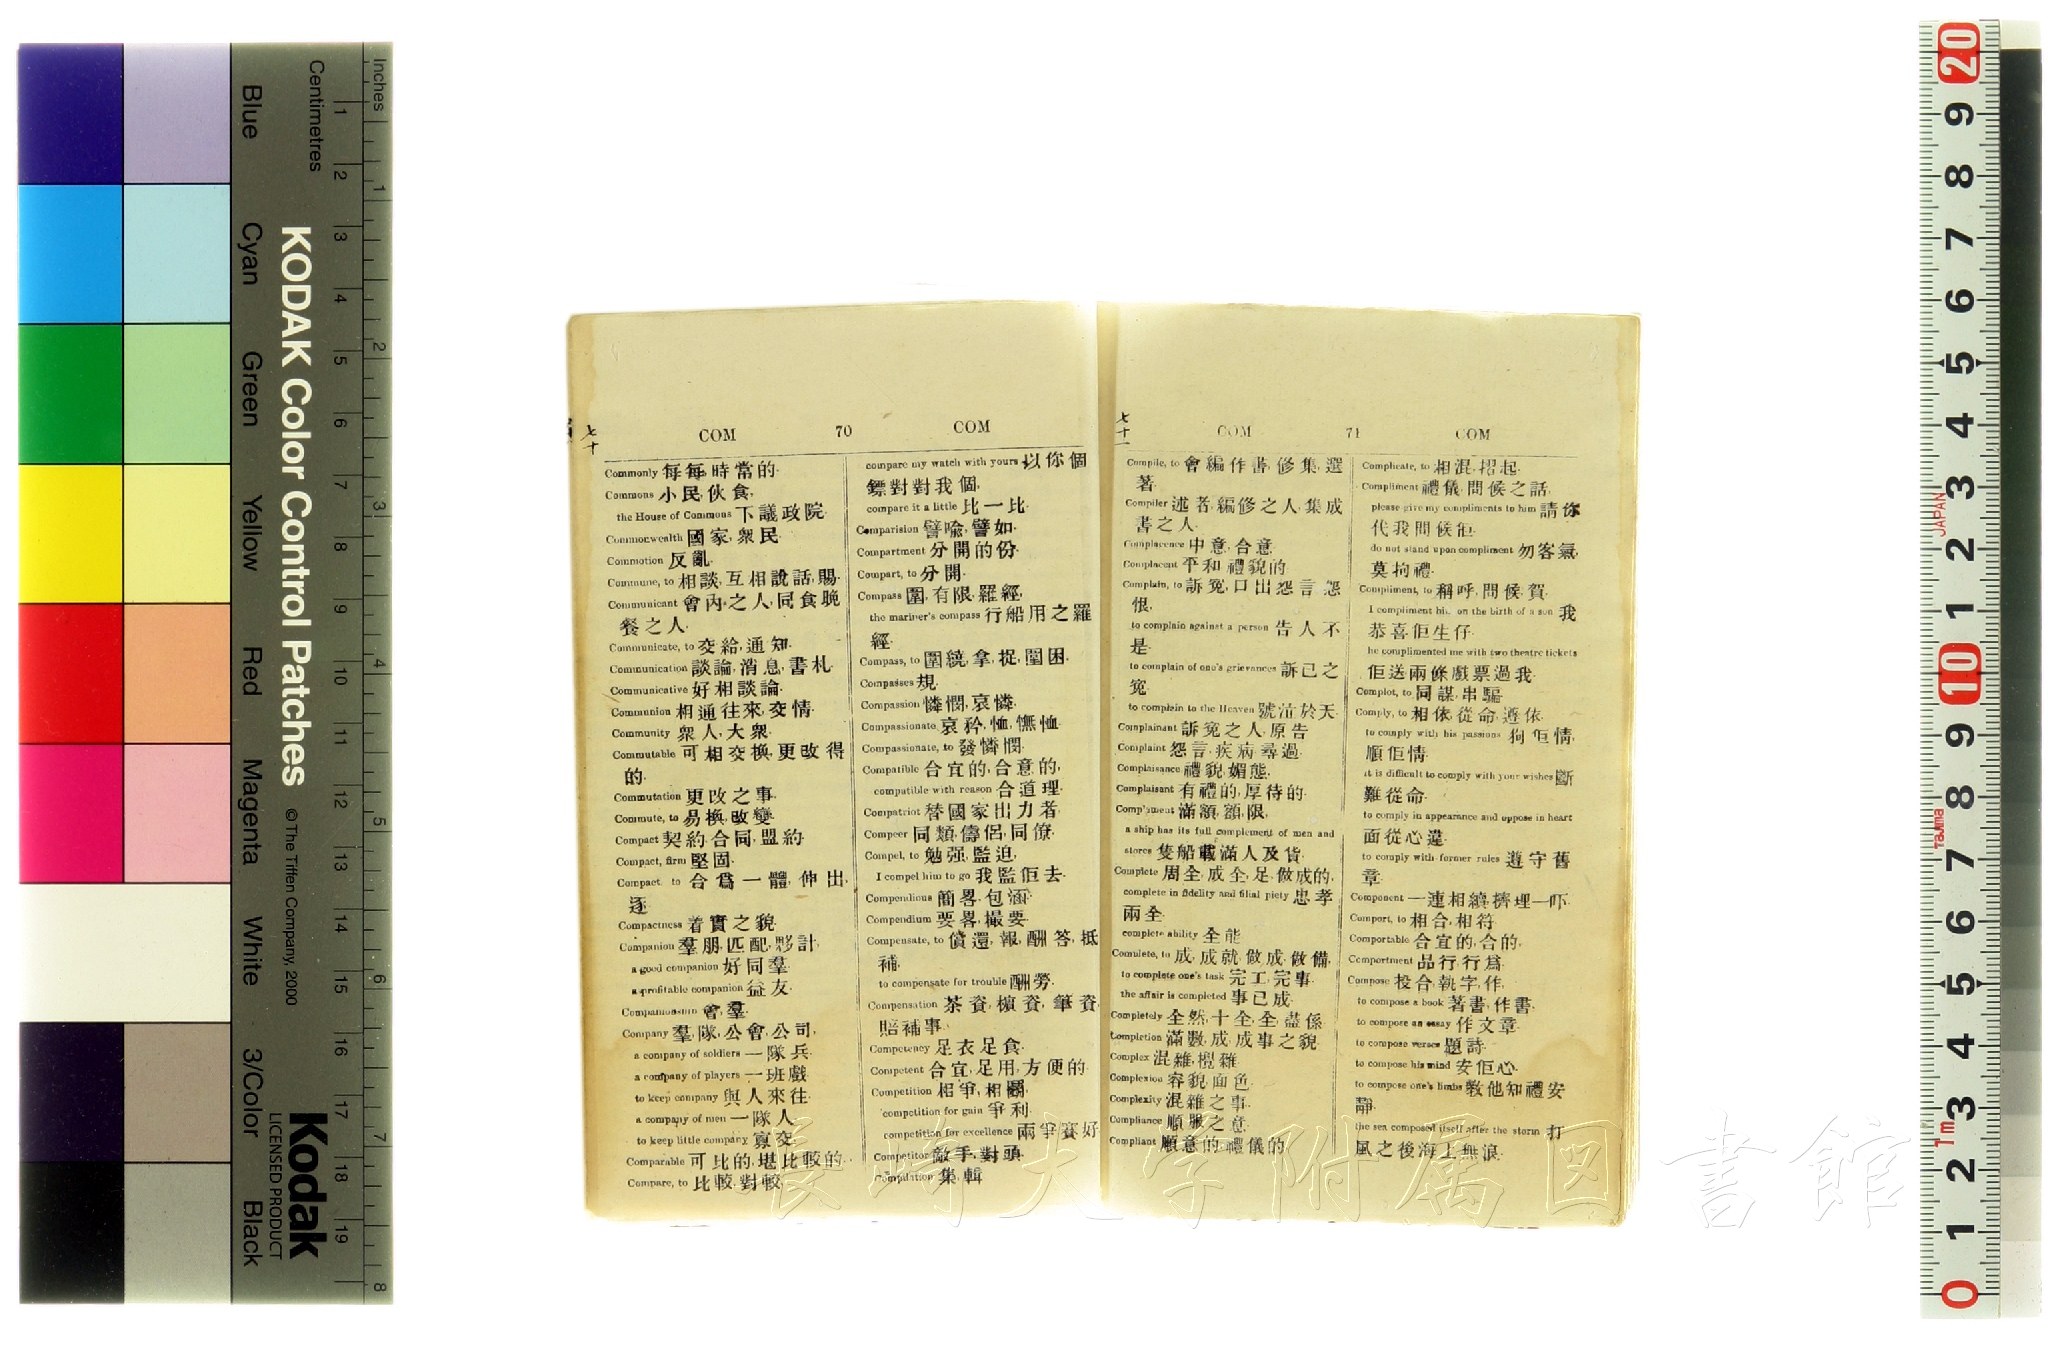 COM 70 COM
七十
Commonly 每每,時常的.
Commons 小民,伙食,
the House of Commons 下議政院.
Commonwealth 國家,衆民
Commotion 反亂.
Commune, to 相談,互相說話,賜.
Communicant 會內之人,同食晚
餐之人.
Communicate, to 交給,通知.
Communication 談論,消息,書札.
Communicative 好相談論.
Communion 相通往來,交情.
Community 衆人,大衆.
Commutable 可相交換,更改得
的.
Commutation 更改之事.
Commute, to 易換,改變.
Compact 契約,合同,盟約.
Compact, firm 堅固.
Compact, to 合爲一體,伸出,
逐.
Compactness 着實之貌.
Companion 羣朋,匹配,夥計,
a good companion 好同羣.
a profitable companion 益友.
Companionship 會羣.
Company 羣,隊,公會,公司,
a company of soldiers 一隊兵.
a company of players 一班戲.
to keep company 與人來往.
a company of men 一隊人.
to keep little company 寡交.
Comparable 可比的,堪比較的.
Compare, to 比較,對較.
compare my watch with yours 以你個
鏢對對我個.
compare it a little 比一比.
Comparision 譬喩,譬如.
Compartment 分開的份.
Compart, to 分開.
Compass 圍,有限,羅經,
the mariner's compass 行船用之羅
經.
Compass, to 圍繞,拿捉,圍困.
Compasses 規.
Compassion 憐憫,哀憐.
Compassionate 哀矜,恤,憮恤.
Compassionate, to 發憐憫.
Compatible 合宜的,合意的,
compatible with reason 合道理.
Compatriot 替國家出力者.
Compeer 同類,儔侶,同僚.
Compel, to 勉强,監迫,
I compel him to go 我監佢去.
Compendious 簡畧,包涵.
Compendium 要畧,撮要.
Compensate, to 償還,報,酬答,抵
補.
to compensate for trouble 酬勞.
Compensation 茶資,檳資,筆資,
賠補事.
Competency 足衣足食.
Competent 合宜,足用,方便的.
Competition 相爭,相鬭,
competition for gain 爭利.
competition for excellence 兩爭賽好.
Competitor 敵手,對頭.
Compilation 集,輯
COM 71 COM
七十一
Compile, to 會編作書,修集,選
著.
Compiler 述者,編修之人,集成
書之人.
Complacence 中意,合意.
Complacent 平和禮貌的.
Complain, to 訴寃,口出怨言,怨
恨,
to complain against a person 告人不
是.
to complain of one's grievances 訴己之
寃.
to complain to the Heaven 號泣於天.
Complainant 訴寃之人,原告
Complaint 怨言,疾病,尋過.
Complaisance 禮貌,媚態.
Complaisant 有禮的,厚待的.
Complement 滿額,額,限,
a ship has its full complement of men and
stores 隻船載滿人及貨.
Complete 周全,成全,足,做成的,
complete in fidelity and filial piety 忠孝
兩全.
complete ability 全能
Comulete, to 成,成就,做成,做備,
to complete one's task 完工,完事.
the affair is completed 事已成.
Completely 全然,十全,全,盡係.
Completion 滿數,成,成事之貌.
Complex 混雜,梶雜.
Complexion 容貌,面色.
Complexity 混雜之事.
Compliance 順服之意.
Compliant 順意的,禮儀的.
Complicate, to 相混,摺起.
Compliment 禮儀,問候之話,
please give my compliments to him 請你
代我問候佢.
do not stand upon compliment 勿客氣,
莫拘禮.
Compliment, to 稱呼,問候,賀.
I compliment him on the birth of a son 我
恭喜佢生仔.
he complimented me with two theatre tickets
佢送兩條戲票過我.
Complot, to 同謀,串騙.
Comply, to 相依,從命,遵依.
to comply with his passions 狥佢情,
順佢情.
it is difficult to comply with your wishes 斷
難從命.
to comply in appearance and oppose in heart
面從心違.
to comply with former rules 遵守舊
章.
Component 一連相續,擠埋一吓.
Comport, to 相合,相符.
Comportable 合宜的,合的.
Comportment 品行,行爲.
Compose 投合,執字,作,
to compose a book 著書,作書.
to compose an essay 作文章.
to compose verses 題詩.
to compose his mind 安佢心.
to compose one's limbs 敎他知禮安
靜.
the sea composed itself after the storm 打
風之後海上無浪.
長崎大学附属図書館
KODAK Color Control Patches
© The Tiffen Company, 2000
Kodak
LICENSED PRODUCT
Inches
Centimetres
Blue
Cyan
Green
Yellow
Red
Magenta
White
3/Color
Black
1 2 3 4 5 6 7 8 9 10 11 12 13 14 15 16 17 18 19
1 2 3 4 5 6 7 8
20 9 8 7 6 5 4 3 2 1 10 9 8 7 6 5 4 3 2 1 0
JAPAN
Tajima
1m